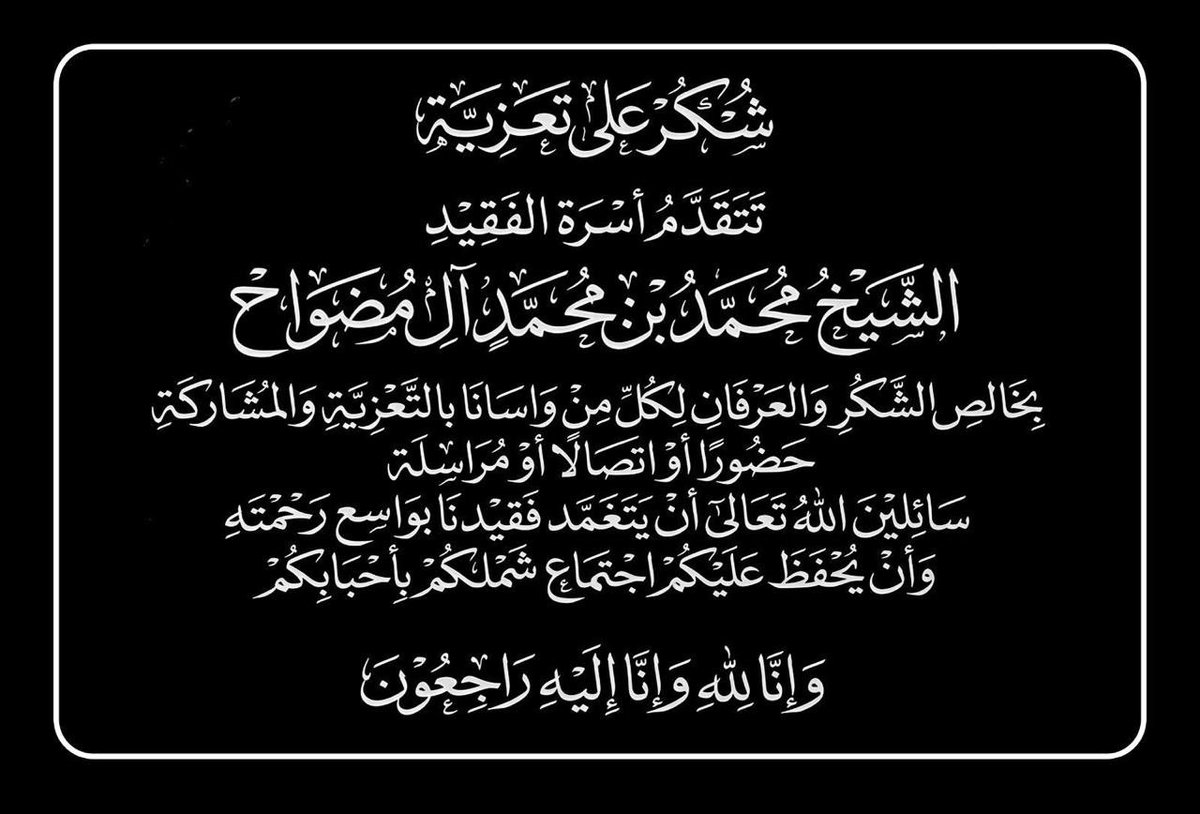 شُكْرٌ عَلىٰ تَعَزِيَّة
تَتَقَدَّمُ أسْرَة الفَقِيْدِ
الشَّيَخُ مُحَمَّدُ بْن مُحَمَّدٍ آلِ مُضوَاح
بِخَالِصِ الشَّكُرِ وَالعَرْفَانِ لِكُلِّ مِنْ وَاسَانَا بالتَّعْزِيَّةِ وَالمُشَارِكَةِ
حَضُورًا أوْ اتصَالًا أوْ مُرَاسِلَة
سَائِلِيْنَ اللهُ تَعَالىٰ أنْ يَتَغَمَّد فَقِيْدنَا بوَاسِع رَحْمَتَهِ
وَأنْ يُحْفَظَ عَلَيْكُمْ اجْتمَاع شَمْلكُمْ بِأحْبَابِكُمْ
وَإنَّا لِلهِ وَإنَّا إِلَيْهِ رَاجِعُوْنَ